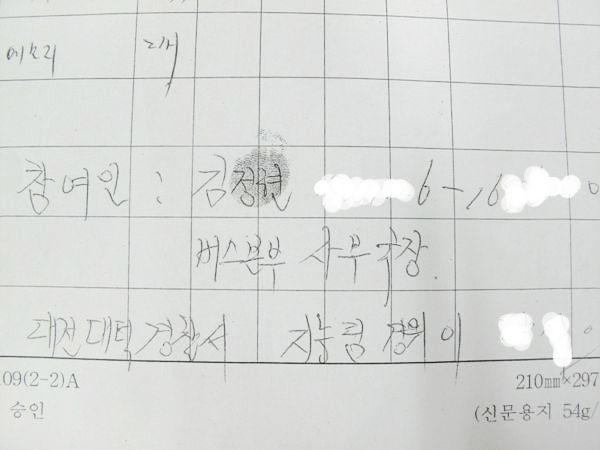 메모리 2개
참여인 : 김정현 6-16
버스본부 사무국장.
대전대덕경찰서 지능팀 경위 이
09(2-2)A 210㎜×297
승인 (신문용지 54g/